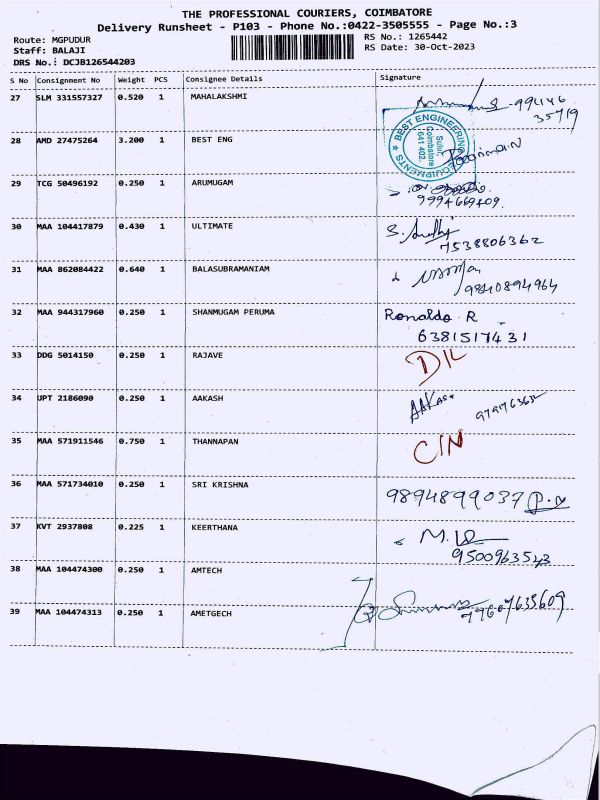 THE PROFESSIONAL COURIERS, COIMBATORE
Delivery Runsheet - P103 - Phone No.:0422-3505555 - Page No.:3
Route: MGPUDUR
RS No.: 1265442
Staff: BALAJI
RS Date: 30-Oct-2023
DRS No.: DCJB126544203
S No Consignment No Weight PCS Consignee Details Signature
27 SLM 331557327 0.520 1 MAHALAKSHMI
99446
35719
28 AMD 27475264 3.200 1 BEST ENG
BEST ENGINEERING EQUIPMENTS
Sulur,
Coimbatore
641 402.
29 TCG 50496192 0.250 1 ARUMUGAM
9994669409.
30 MAA 104417879 0.430 1 ULTIMATE
7538806362
31 MAA 862084422 0.640 1 BALASUBRAMANIAM
32 MAA 944317960 0.250 1 SHANMUGAM PERUMA Ronaldo R
6381517431
33 DDG 5014150 0.250 1 RAJAVE D/L
34 UPT 2186090 0.250 1 AAKASH AAKASH
35 MAA 571911546 0.750 1 THANNAPAN C/N
36 MAA 571734010 0.250 1 SRI KRISHNA 9894899037
37 KVT 2937808 0.225 1 KEERTHANA
9500963543
38 MAA 104474300 0.250 1 AMTECH
39 MAA 104474313 0.250 1 AMETGECH